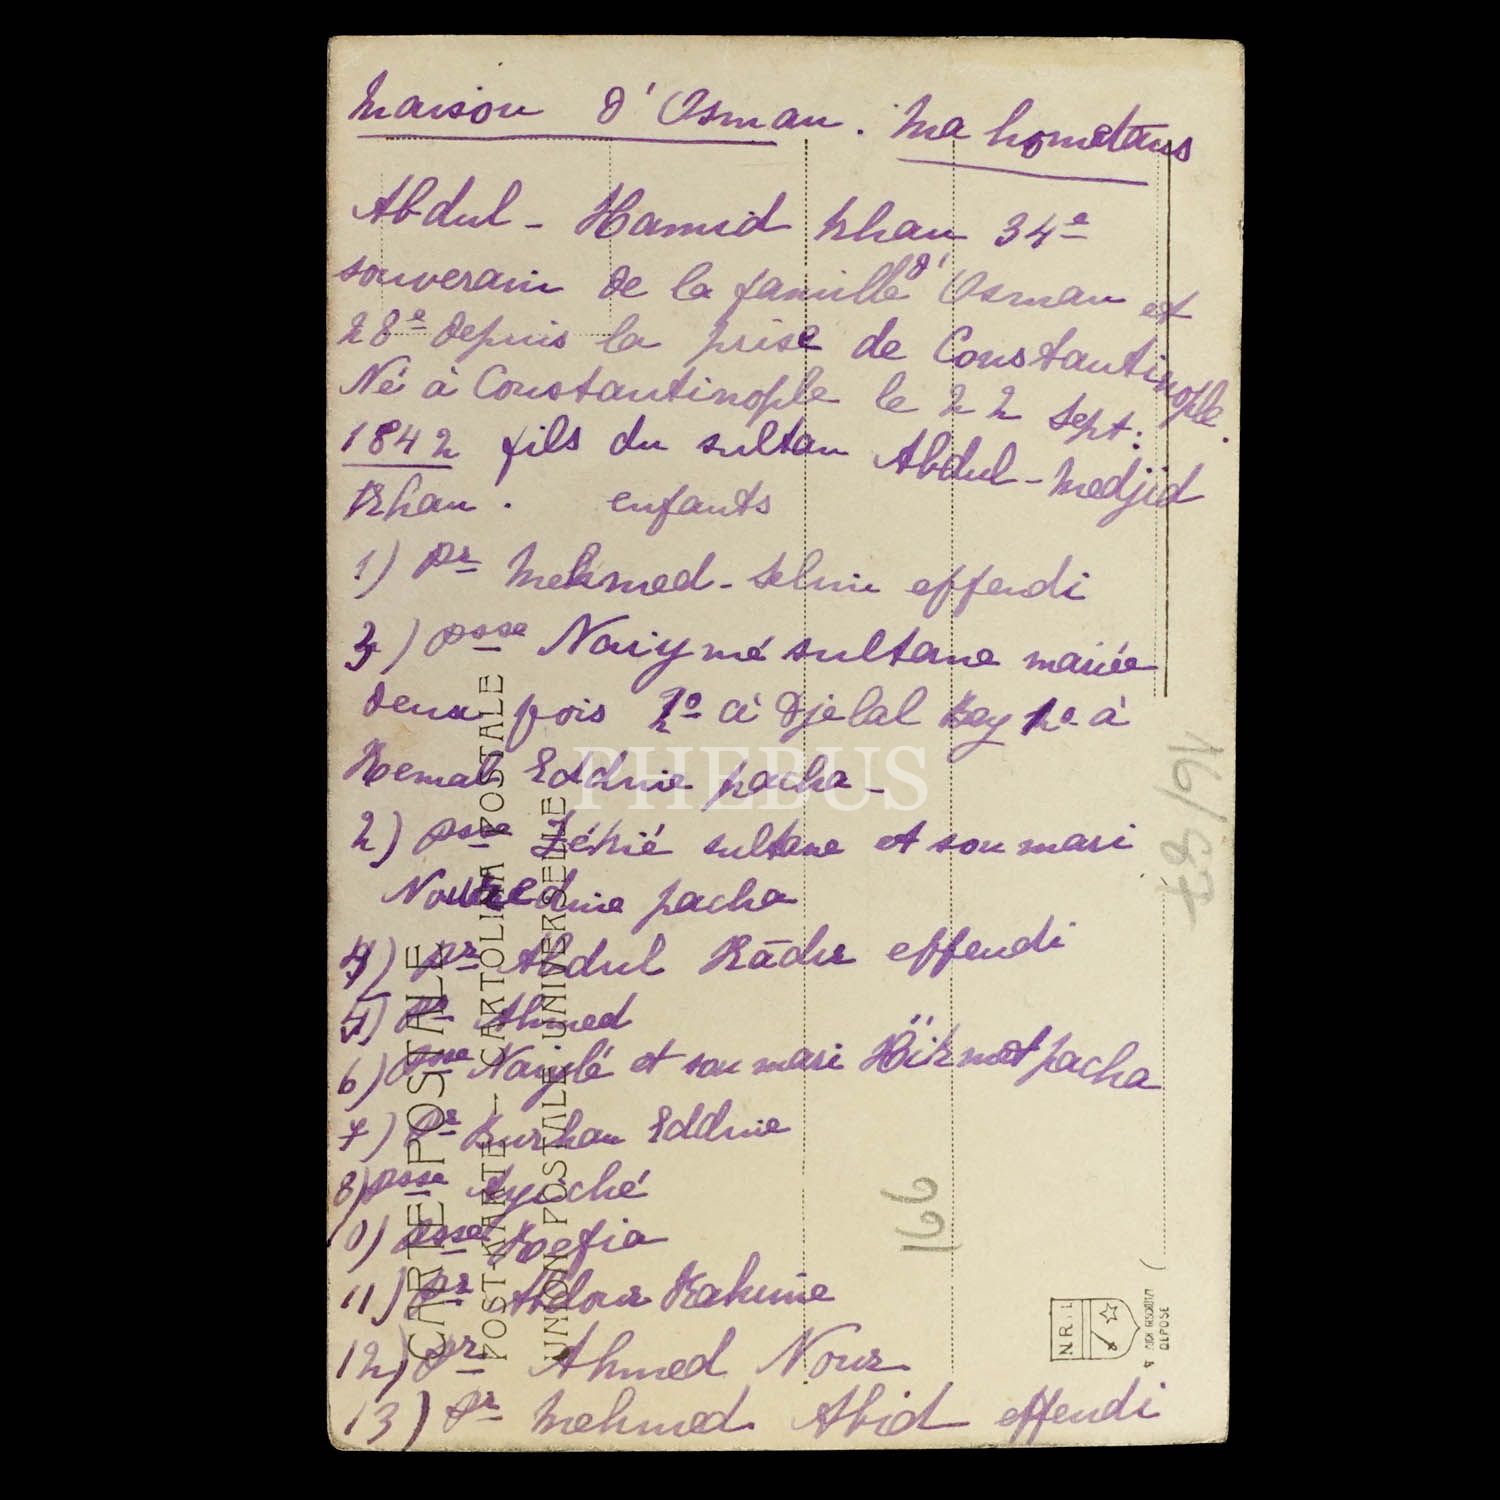 Maison d'Osman. Mahométans
Abdul-Hamid Khan 34e
souverain de la famille d'Osman et
28e depuis la prise de Constantinople.
Né à Constantinople le 22 Sept:
1842 fils du sultan Abdul-Medjid
Khan. enfants
1) Pr Mehmed-Selim effendi
3) Psse Naiymé sultane mariée
deux fois 1o à Djelal Bey 2o à
Kemal Eddine pacha -
2) Psse Zékié sultane et son mari
Noureddine pacha
4) Pr Abdul Kādir effendi
5) Pr Ahmed
6) Psse Nayilé et son mari Hikmet pacha
7) Pr Burhan Eddine
8) Psse Ayiché
9) Psse Refia
11) Pr Abdour Rahime
12) Pr Ahmed Nour
13) Pr Mehmed Abid effendi
CARTE POSTALE
POST-KARTE - CARTOLINA POSTALE
UNION POSTALE UNIVERSELLE
PHEBUS
16/57
166
N.R.I.
DEPOSE